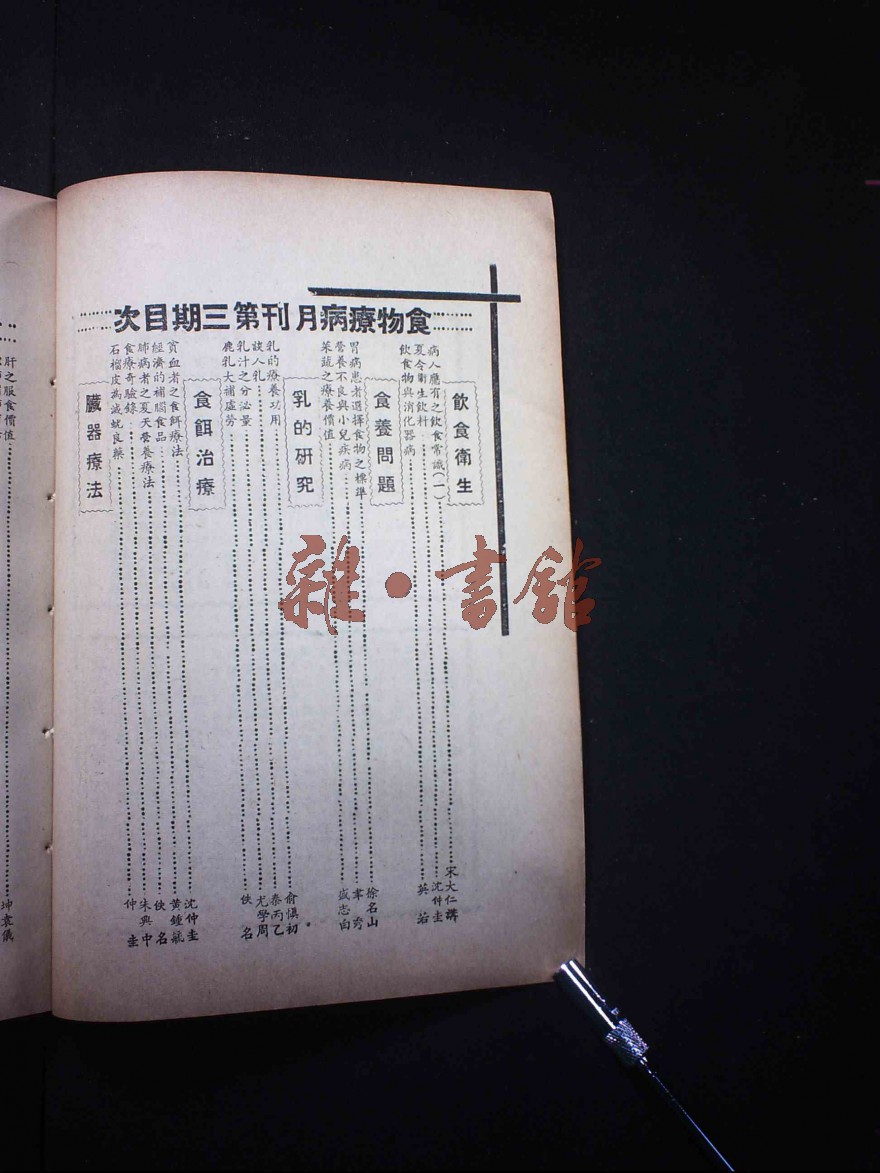 食物療病月刊第三期目次
飲食衛生
病人應有之飲食常識(一)⋯⋯宋大仁講
夏令衛生飲料⋯⋯沈仲圭
飲食物與消化器病⋯⋯英若
食養問題
胃病患者選擇食物之標準⋯⋯徐名山
營養不良與小兒疾病⋯⋯韋秀
菜蔬之療養價值⋯⋯盛志白
乳的研究
乳的療養功用⋯⋯俞慎初
談人乳⋯⋯秦丙乙
乳汁之分泌量⋯⋯尤學周
鹿乳大補虛勞⋯⋯佚名
食餌治療
貧血者之食餌療法⋯⋯沈仲圭
經濟的補腦食品⋯⋯黃鍾毓
肺病者之夏天營養療法⋯⋯佚名
食療奇驗錄⋯⋯朱興中
石榴皮為滅蚘良藥⋯⋯仲圭
臟器療法
肝之服食價值⋯⋯坤袁儀
雜·書館